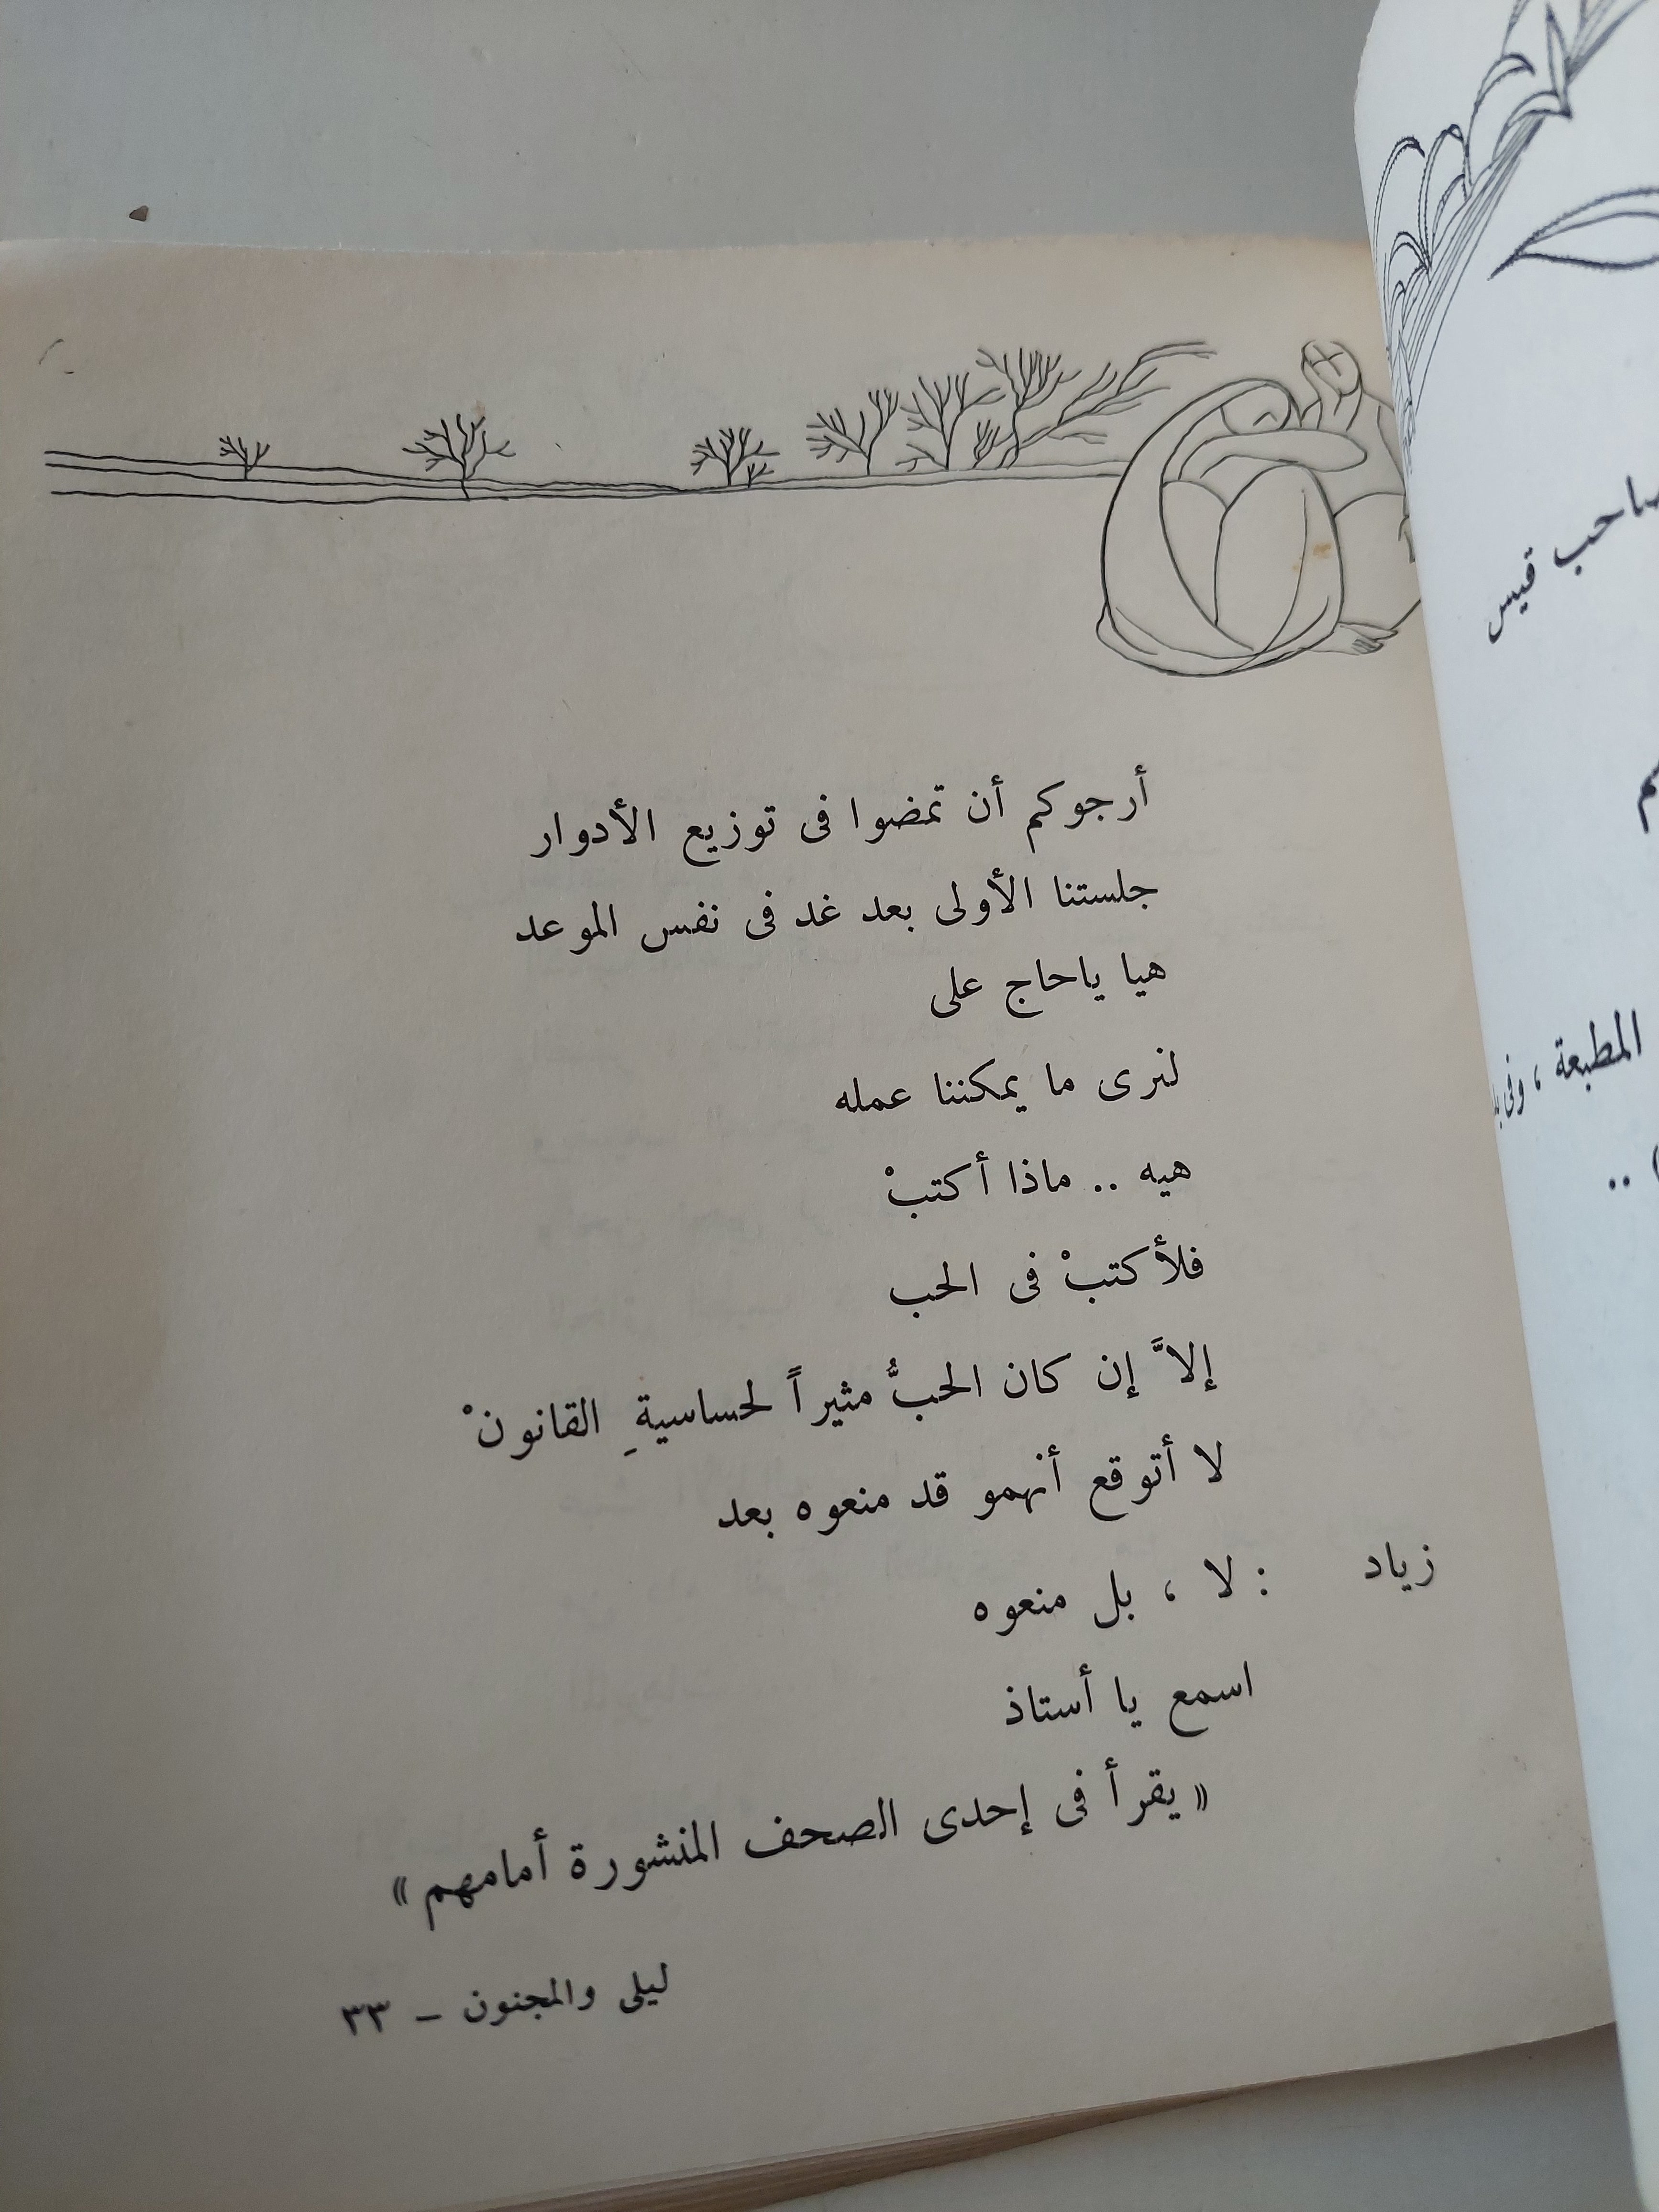 أرجوكم أن تمضوا فى توزيع الأدوار
جلستنا الأولى بعد غد فى نفس الموعد
هيا ياحاج على
لنرى ما يمكننا عمله
هيه .. ماذا أكتبْ
فلأكتبْ فى الحب
إلاَّ إن كان الحبُّ مثيراً لحساسيةِ القانونْ
لا أتوقع أنهمو قد منعوه بعد
زياد : لا ، بل منعوه
اسمع يا أستاذ
« يقرأ فى إحدى الصحف المنشورة أمامهم »
ليلى والمجنون – ٣٣
قيس
المطبعة ،
..